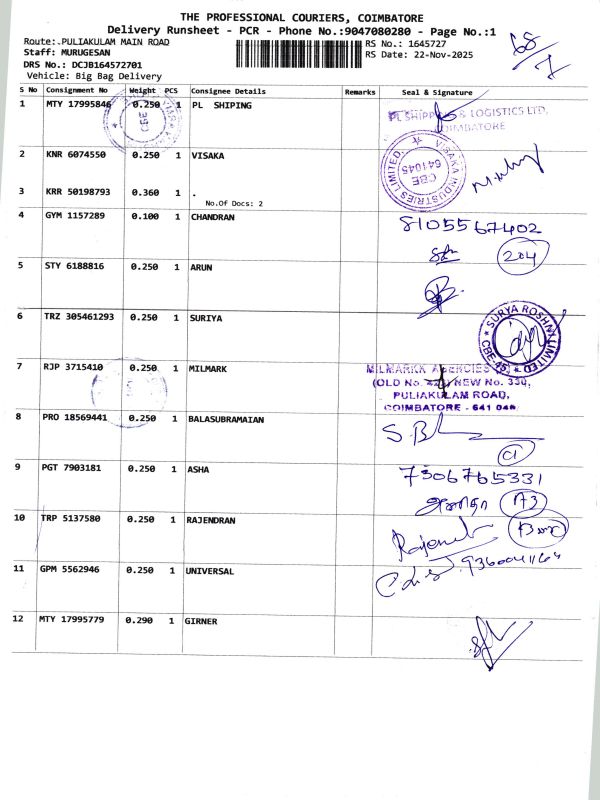 THE PROFESSIONAL COURIERS, COIMBATORE
Delivery Runsheet - PCR - Phone No.:9047080280 - Page No.:1
Route:.PULIAKULAM MAIN ROAD
Staff: MURUGESAN
DRS No.: DCJB164572701
Vehicle: Big Bag Delivery
RS No.: 1645727
RS Date: 22-Nov-2025
68/7
S No Consignment No Weight PCS Consignee Details Remarks Seal & Signature
1 MTY 17995846 0.250 1 PL SHIPING
PL SHIPPING & LOGISTICS LTD,
COIMBATORE
CBE
2 KNR 6074550 0.250 1 VISAKA
VISAKA INDUSTRIES LIMITED.
CBE
641045
3 KRR 50198793 0.360 1 .
No.Of Docs: 2
4 GYM 1157289 0.100 1 CHANDRAN
8105567402
204
5 STY 6188816 0.250 1 ARUN
6 TRZ 305461293 0.250 1 SURIYA
SURYA ROSHNI LIMITED
CBE-45
7 RJP 3715410 0.250 1 MILMARK
MILMARKK AGENCIES
(OLD No. NEW No. 330,
PULIAKULAM ROAD,
COIMBATORE - 641 045
8 PRO 18569441 0.250 1 BALASUBRAMAIAN
S.B
C1
9 PGT 7903181 0.250 1 ASHA
7306765331
A3
10 TRP 5137580 0.250 1 RAJENDRAN
Rajendr
11 GPM 5562946 0.250 1 UNIVERSAL
12 MTY 17995779 0.290 1 GIRNER